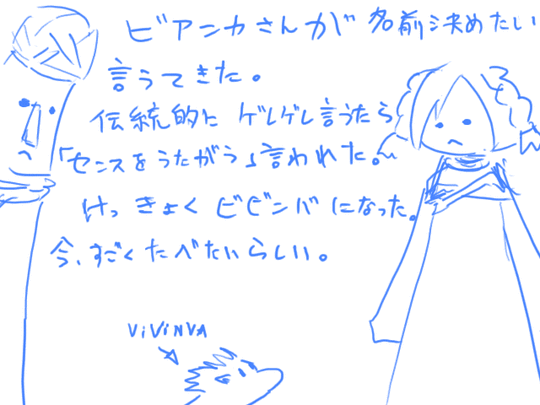 ビアンカさんが名前決めたい
言うてきた。
伝統的に ゲレゲレ言うたら
「センスをうたがう」言われた。
けっきょくビビンバになった。
今、すごくたべたいらしい。
ViViNVA